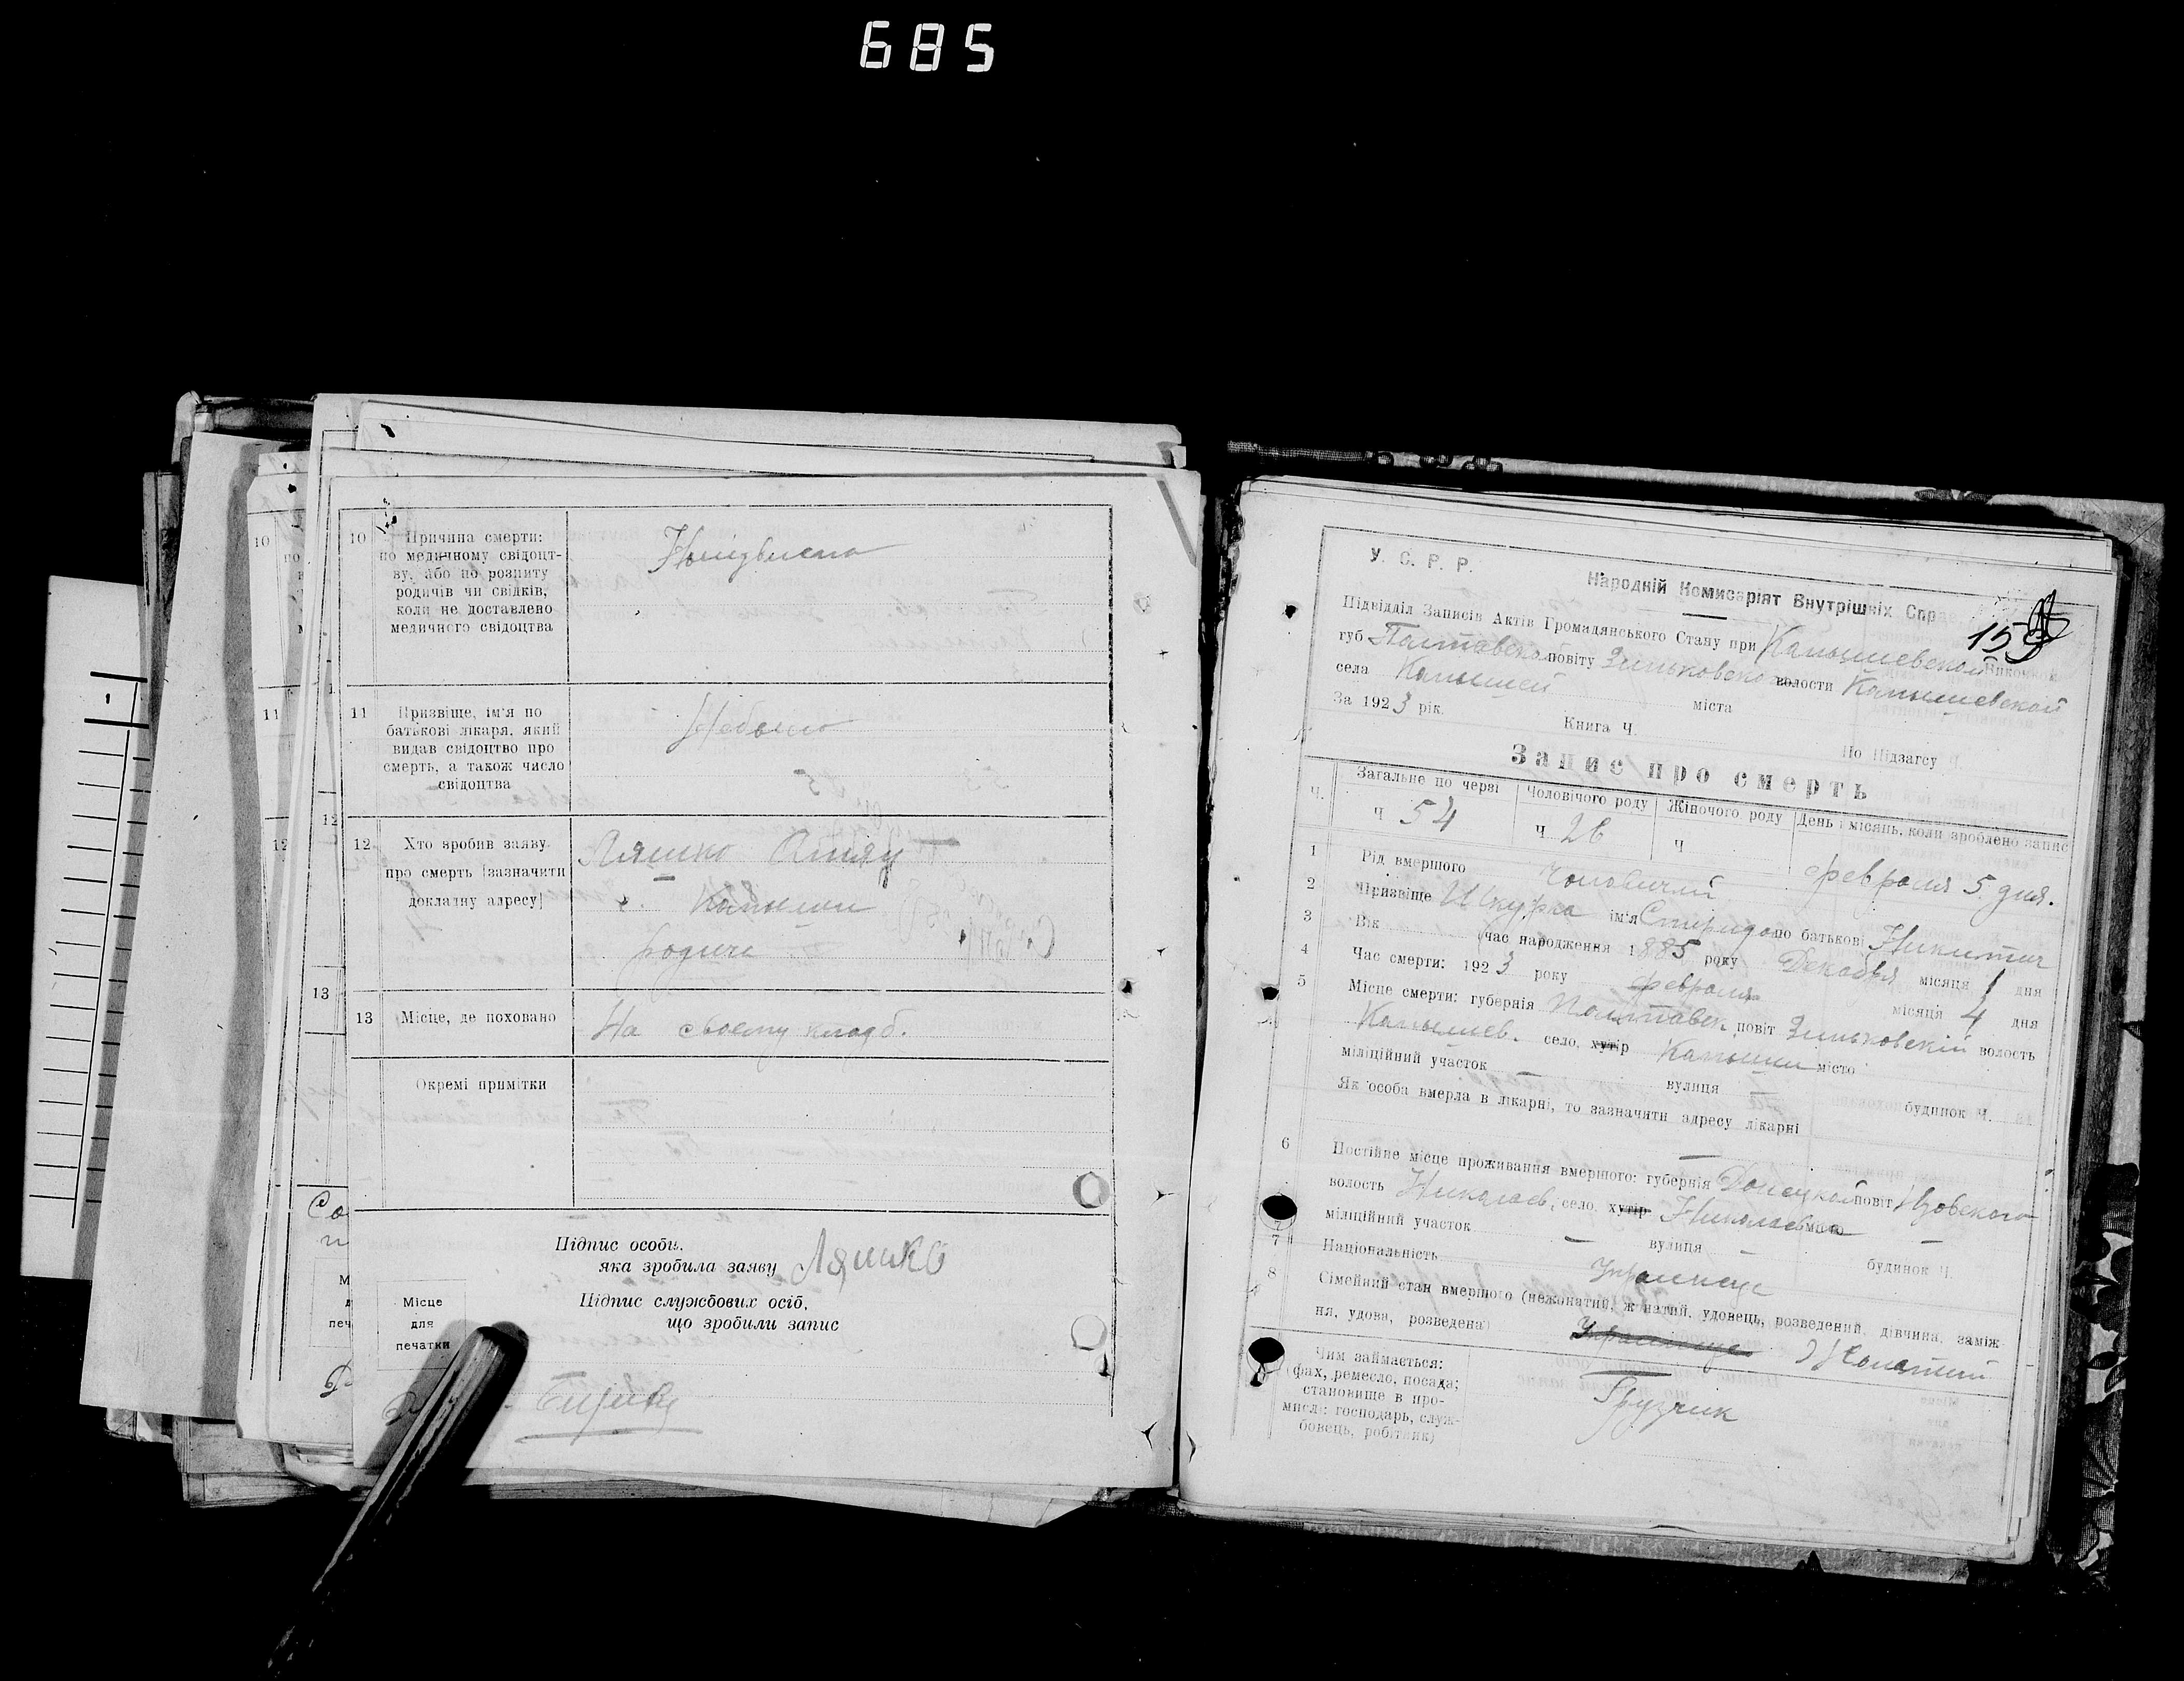 685
10
Причина смерти:
по медичному свідоцт-
ву, або по розпиту
родичів чи свідків,
коли не доставлено
медичного свідоцтва
11
Призвіще, ім'я по
батькові лікаря, який
видав свідоцтво про
смерть, а також число
свідоцтва
12
Хто зробив заяву
про смерть (зазначити
докладну адресу)
Ляшко
родичі
13
Місце, де поховано
На своему кладб.
Окремі примітки
Підпис особи,
яка зробила заяву Ляшко
Підпис службових осіб,
що зробили запис
Місце
для
печатки
У. С. Р. Р.
Народній Комисаріят Внутрішніх Справ
153
Підвідділ Записів Актів Громадянського Стану при Камышевской Виконком
губ Полтавской повіту Зиньковско волости Камышевской
села Камышей міста
За 1923 рік. Книга Ч. По Підзагсу Ч
Запис про смерть
Ч. Загальне по черзі Чоловічого роду Жіночого роду День і місяць, коли зроблено запис
Ч 54 Ч 26 Ч февраля 5 дня.
1 Рід вмершого Чоловичий
2 Призвіще Шкурка ім'я Спиридо по батькові Никитич
3 Вік (час народження 1885 року Декабря місяця 1 дня
4 Час смерти: 1923 року февраля місяця 4 дня
5 Місце смерти: губернія Полтавск повіт Зиньковскій волость
Камышев. село, хутір Камыши місто
міліційний участок — вулиця — будинок Ч.
Як особа вмерла в лікарні, то зазначити адресу лікарні
—
6 Постійне місце проживання вмершого: губернія Донецкой повіт Юзовского
волость Николаев. село, хутір Николаевка місто —
міліційний участок — вулиця — будинок Ч.
7 Національність Украинец
8 Сімейний стан вмершого (нежонатий, жонатий, удовець, розведений, дівчина, заміж-
ня, удова, розведена) Украинец Жонатий
Чим займається:
(фах, ремесло, посада;
становище в про-
мислі: господарь, служ-
бовець, робітник)
Грузчик